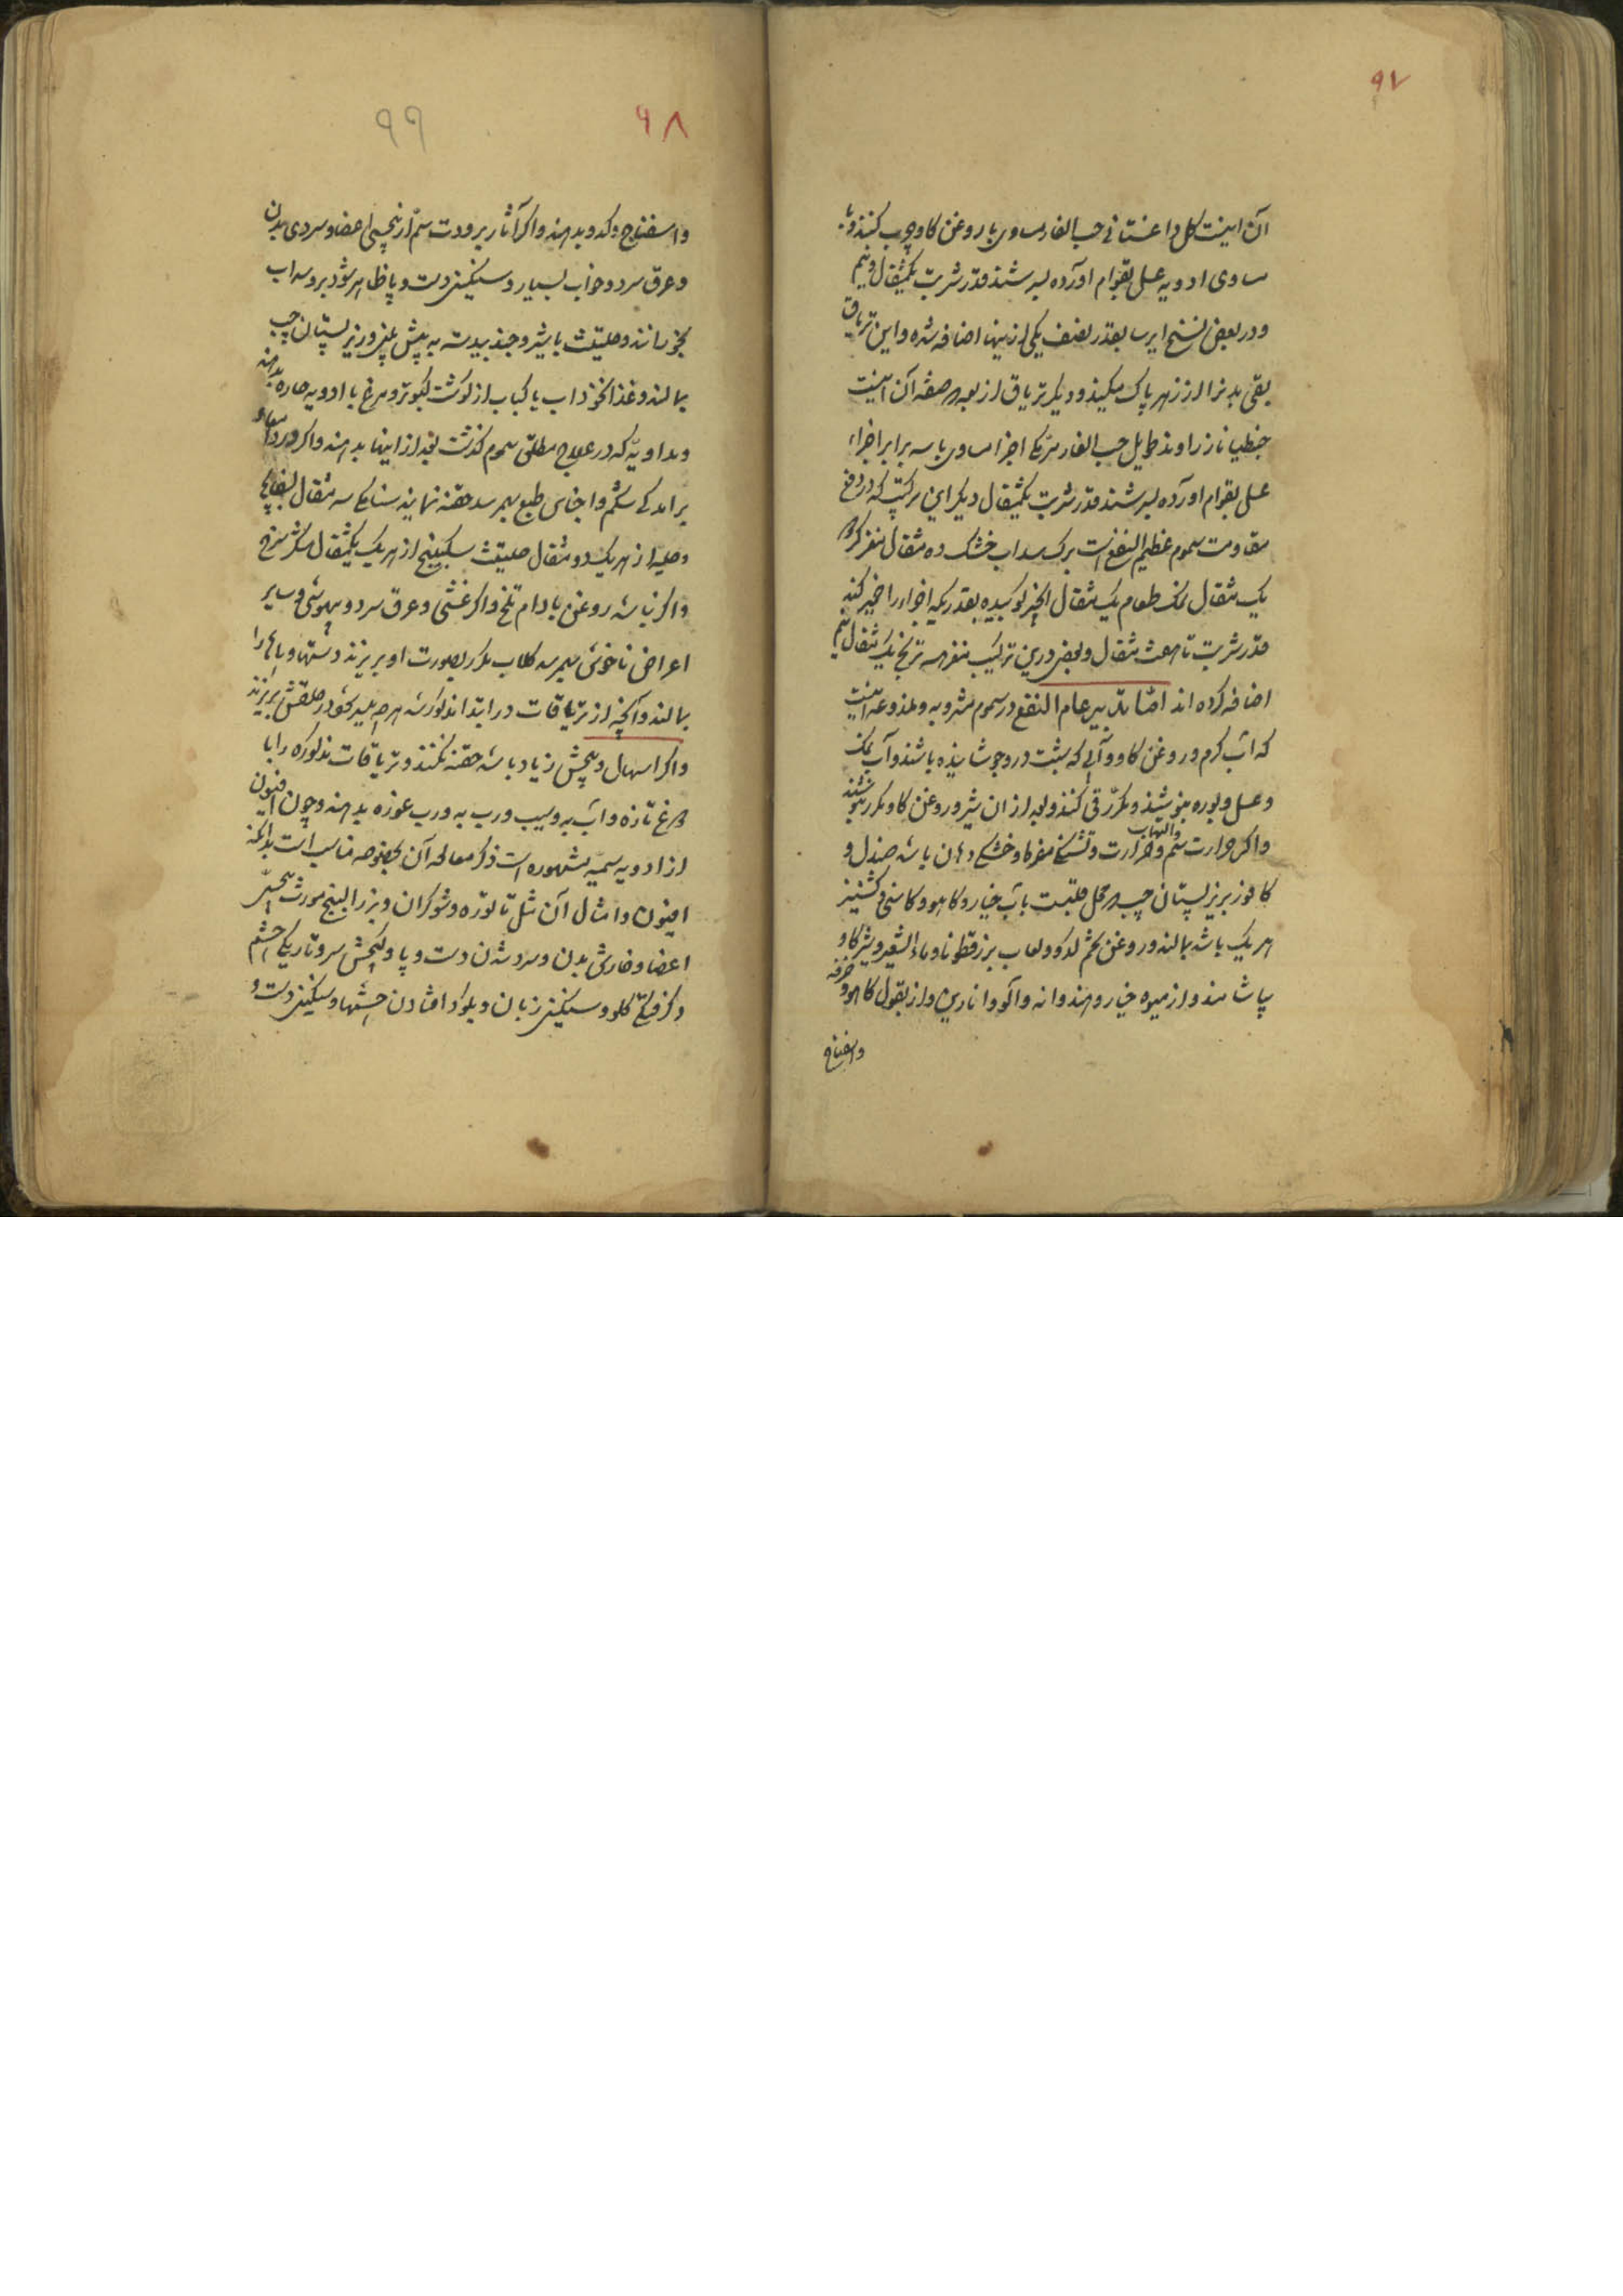 ۹۷
آن اینست گل داغستانی حب الغار مساوی با روغن گاو چرب کنند و با
مساوی ادویه عسل بقوام آورده بسرشند قدر شربت یکمثقال و نیم
و در بعض نسخ ایرسا بقدر نصف یکی از اینها اضافه شده و این تریاق
بقی بدنرا از زهر پاک میکند و دیگر تریاق اربعه صفة آن اینست
جنطیانا زراوند طویل حب الغار مرّمکی اجزا مساوی با سه برابر اجزاء
عسل بقوام آورده بسرشند قدر شربت یکمثقال دیگر این مرکبست که در دفع
مقاومت سموم عظیم النفع است برک سداب خشک ده مثقال مغز گردو
یک مثقال نمک طعام یک مثقال انجیر کوبیده بقدریکه اجزاء را خمیر کند
قدر شربت تا هفت مثقال و بعضی درین ترکیب مغز هسته ترنج یک مثقال و نیم
اضافه کرده اند امّا تدابیر عام النفع در سموم مشروبه و ملذوعه اینست
که آب گرم و روغن گاو و آبی که شبت در او جوشانیده باشند و آب نمک
و عسل و بوره بنوشند و مکرّر قی کنند و بعد از ان شیر و روغن گاو مکرر بنوشند
و اگر حرارت سم و التهاب و حرارت و تشنگی مفرط و خشکی دهان باشد صندل و
کافور بر زیر پستان چپ که محل قلبست بآب خیار و کاهو و کاسنی و گشنیز
هر یک باشد بمالند و روغن تخم کدو و لعاب بزرقطونا و ماء الشعیر و شیر گاو
بیاشامند و از میوه خیار و هندوانه و آلو و انارین و از بقول کاهو و خرفه
و اسفناخ
۹۸
۹۹
و اسفناج و کدو بدهند و اگر آثار برودت سم از بیحسی اعضا و سردی بدن
و عرق سرد و خواب بسیار و سنگینی دست و پا ظاهر شود بر و سداب
بخورانند و حلتیت با شیر و جندبیدستر به پیش بینی و زیر پستان چپ
بمالند و غذا نخوداب یا کباب از گوشت کبوتر و مرغ با ادویه حاره بدهند
و مداویّه که در علاج مطلق سموم گذشت بعد از اینها بدهند و اگر درد امعاء
برآمدگی شکم و احتباس طبع بهمرسد حقنه نمایند سنامکی سه مثقال بسفایج
و حلبه از هر یک دو مثقال حلتیت سکبینج از هر یک یکمثقال شکر سرخ
و اگر نباشد روغن بادام تلخ و اگر غشی و عرق سرد و بیهوشی و سایر
اعراض ناخوشی بهمرسد گلاب مکرر بصورت او بریزند و دستها و پاها را
بمالند و آنچه از تریاقات در ابتدا مذکور شد هر چه میسر شود در حلقش بریزند
و اگر اسهال و پیچش زیاد باشد حقنه نکنند و تریاقات مذکوره را با
دوغ تازه و آب به و سیب و رب به و رب غوره بدهند و چون افیون
از ادویه سمیه مشهوره است ذکر معالجه آن بخصوصه مناسب است بدانکه
افیون و امثال آن مثل تاتوره و شوکران و بزرالبنج مورث بیحسی
اعضا و خارش بدن و سرد شدن دست و پا و گیجش سر و تاریکی چشم
و گرفتگی گلو و سنگینی زبان و بگود افتادن چشمها و سنگینی دست و